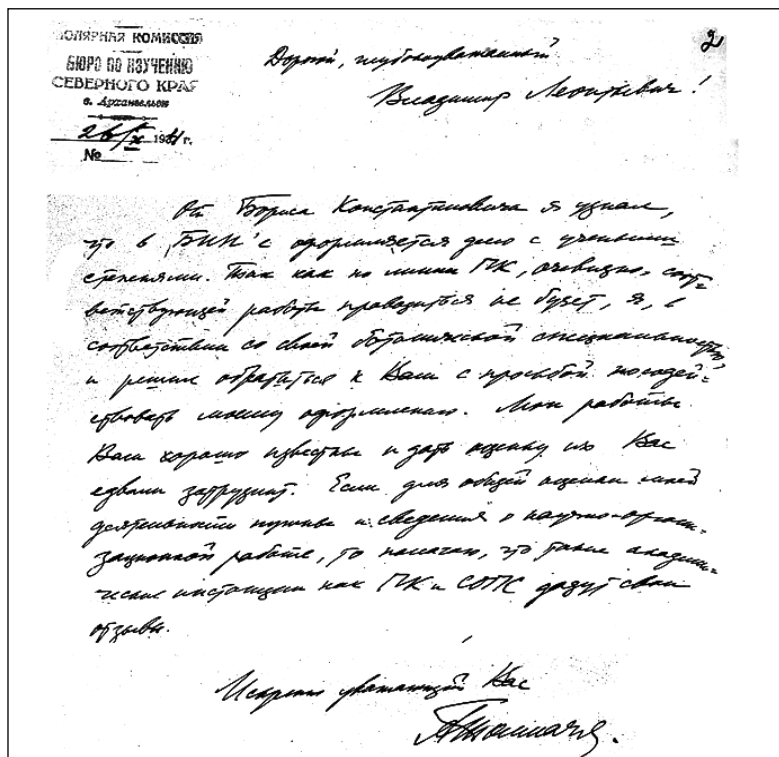 ПОЛЯРНАЯ КОМИССИЯ
БЮРО ПО ИЗУЧЕНИЮ
СЕВЕРНОГО КРАЯ
г. Архангельск
26/X 1931 г.
№
2
Дорогой, глубокоуважаемый
Владимир Леонтьевич!
От Бориса Константиновича я узнал,
что в БИН'е оформляется дело с учеными
степенями. Так как по линии ПК, очевидно, соот-
ветствующей работы проводиться не будет, я, в
соответствии со своей ботанической специальностью,
и решил обратиться к Вам с просьбой посодей-
ствовать моему оформлению. Мои работы
Вам хорошо известны и дать оценку их Вас
едва ли затруднит. Если для общей оценки моей
деятельности нужны и сведения о научно-органи-
зационной работе, то полагаю, что такие академи-
ческие инстанции как ПК и СОПС дадут свои
отзывы.
Искренно уважающий Вас
АТолмачев.